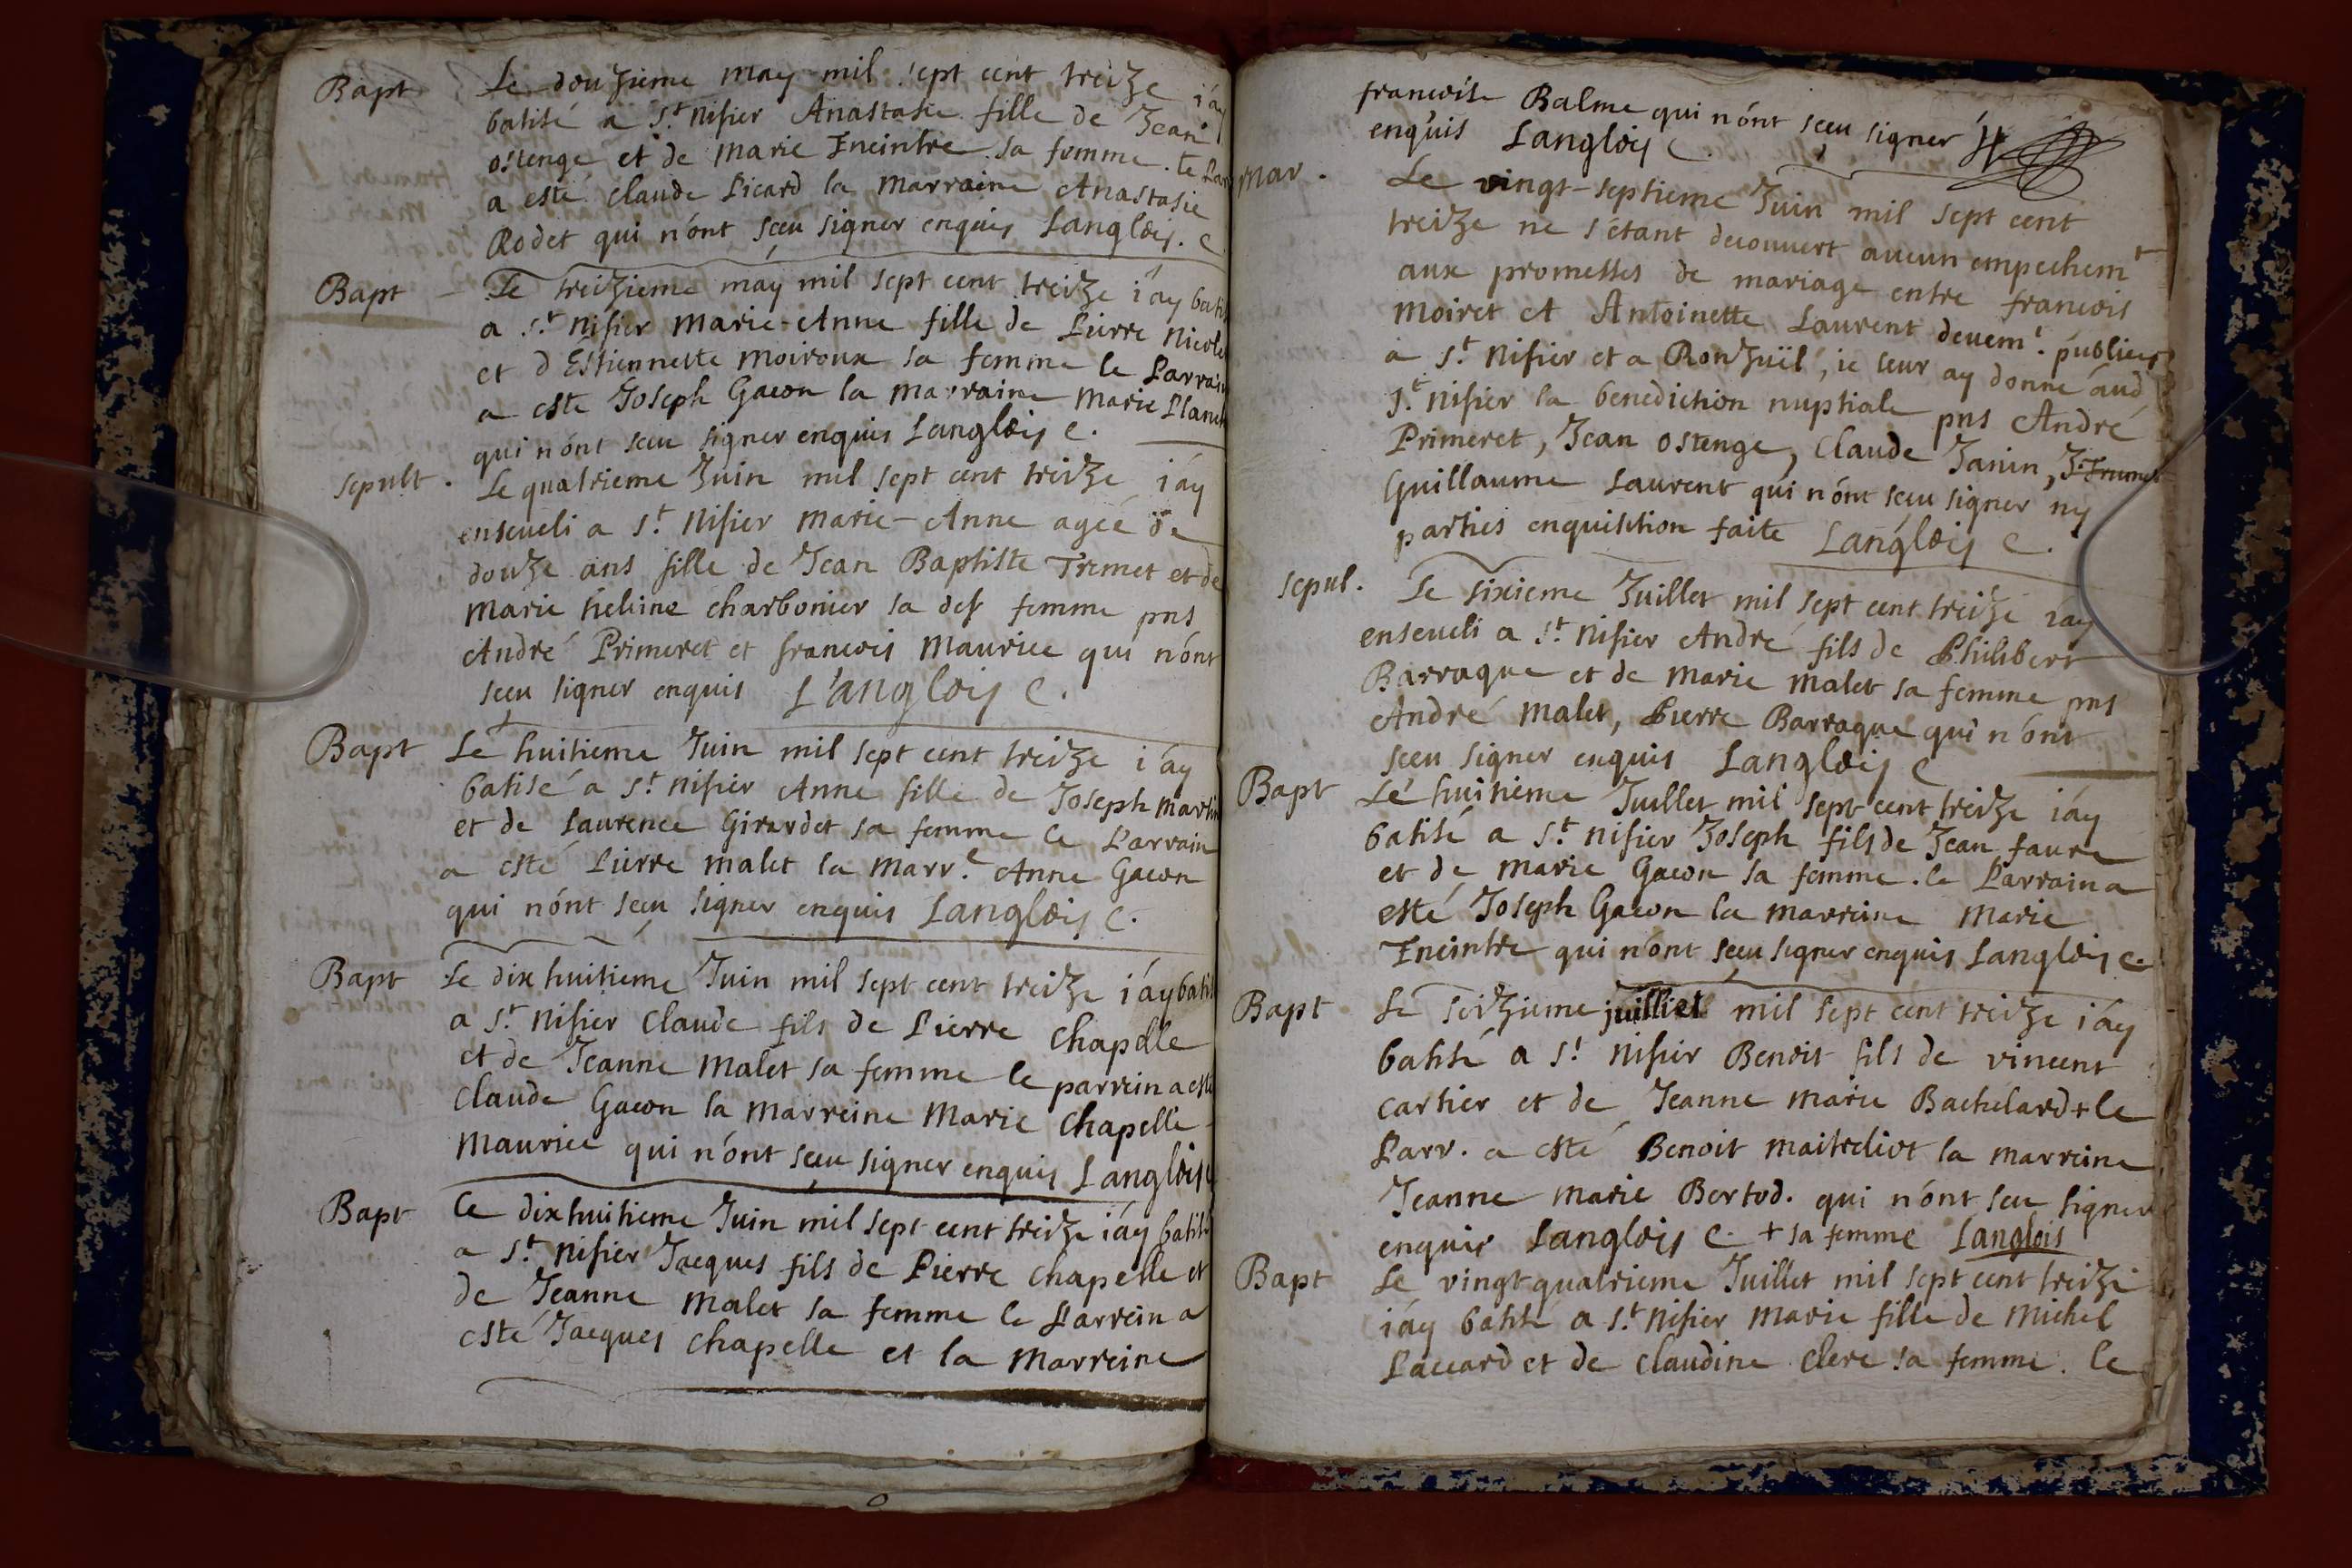 Bapt Le douzieme may mil sept cent treize i'ay
batisé a S.t Nisier Anastasie fille de Jean
ostenge et de Marie Fneintre sa femme. le Par
a esté Claude Picard la Marraine Anastasie
Rodet qui n'ont sceu signer enquis Langlois. C
Bapt Le treizieme may mil sept cent treize i'ay bati
a S.t Nisier Marie-Anne fille de Pierre Nicole
et d'Estiennette Moiroux sa femme le Parrain
a esté Joseph Gacon la marraine Marie Planch
qui n'ont sceu signer enquis Langlois C.
sepult. Le quatrieme Juin mil sept cent treize i'ay
enseveli a S.t Nisier Marie-Anne agée de
douze ans fille de Jean Baptiste Trimet et de
Marie heleine charbonier sa def femme pns
André Primeret et francois Maurice qui n'ont
sceu signer enquis Langlois C.
Bapt Le huitieme Juin mil sept cent treize i'ay
batisé a S.t Nisier Anne fille de Joseph Martin
et de Laurence Girardet sa femme le Parrain
a esté Pierre malet la Marr.e Anne Gacon
qui n'ont sceu signer enquis Langlois C.
Bapt Le dix huitieme Juin mil sept cent treize i'ay batis
a S.t Nisier Claude fils de Pierre Chapelle
et de Jeanne Malet sa femme le parrein a esté
Claude Gacon la Marreine Marie Chapelle
Maurice qui n'ont sceu signer enquis Langlois C
Bapt Le dix huitieme Juin mil sept cent treize i'ay batis
a S.t Nisier Jacques fils de Pierre Chapelle et
de Jeanne Malet sa femme le Parrein a
esté Jacques Chapelle et la Marreine
francoise Balme qui n'ont sceu signer
enquis Langlois C.
Mar. Le vingt-septieme Juin mil sept cent
treize ne s'étant decouvert aucun empechem.t
aux promesses de mariage entre francois
Moiret et Antoinette Laurent deuem.t publiees
a S.t Nisier et a Ronzuël, ie leur ay donné aud
S.t Nisier la benediction nuptiale pns André
Primeret, Jean Ostenge, Claude Janin,
Guillaume Laurent qui n'ont sceu signer ny
parties enquisition faite Langlois C.
sepul. Le sixieme Juillet mil sept cent treize i'ay
enseveli a S.t Nisier André fils de Philibert
Barraque et de Marie Malet sa femme pns
André Malet, Pierre Barraque qui n'ont
sceu signer enquis Langlois C
Bapt Le huitieme Juillet mil sept cent treize i'ay
batisé a S.t Nisier Joseph fils de Jean faure
et de Marie Gacon sa femme. le Parrain a
esté Joseph Gacon la marreine Marie
Fneintre qui n'ont sceu signer enquis Langlois C.
Bapt Le seizieme juilliet mil sept cent treize i'ay
batisé a S.t Nisier Benoit fils de vincent
cartier et de Jeanne Marie Bachelard + le
Parr. a esté Benoit maitrediot la marreine
Jeanne Marie Bertod. qui n'ont sceu signer
enquis Langlois C. + sa femme Langlois
Bapt Le vingt quatrieme Juillet mil sept cent treize
i'ay batisé a S.t Nisier Marie fille de Michel
Paccard et de Claudine Clerc sa femme. le